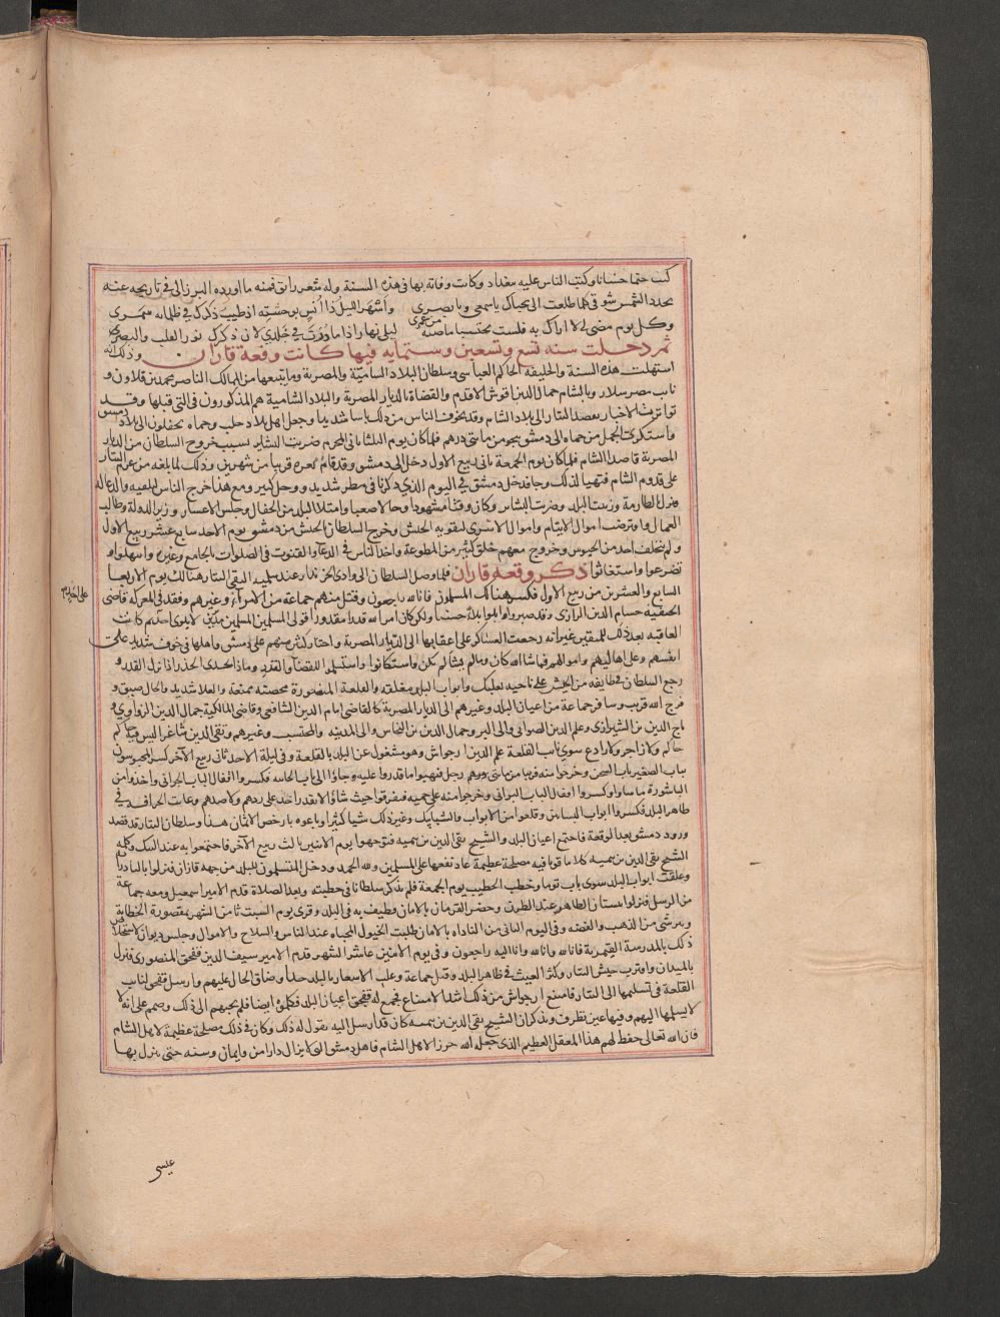 كتب ختما حسانا وكتب الناس عليه ببغداد وكانت وفاته بها في هذه السنة وله شعر رائق فمنه ما اورده البرزالي في تاريخه عنه
تجدد الشمس شوقي كلما طلعت الى محياك ياسمعي ويا بصري واسهر الليل ذا انس بوحشته اذ طيب ذكرك في ظلمائه سمري
وكل يوم مضى لي لا اراك به فلست محتسبا ماضيه من عمري ليلي نهار اذا ما درت في خلدي لان ذكرك نور القلب والبصر
ثم دخلت سنة تسع وتسعين وستمايه فيها كانت وقعة قازان وذلك انه
استهلت هذه السنة والخليفة الحاكم العباسي وسلطان البلاد الشامية والمصرية وما يتبعها من الممالك الناصر محمد بن قلاون و
نايب مصر سلار وبالشام جمال الدين اقوش الافرم والقضاة بالديار المصرية والبلاد الشامية هم المذكورون في التي قبلها وقد
تواترت الاخبار بقصد التتار الى بلاد الشام وقد تخوف الناس من ذلك باسا شديدا وجعل اهل بلاد حلب وحماه يجفلون الى بلاد دمشق
واستكريت الخيل من حماه الى دمشق بنحو من مائتي درهم فلما كان يوم الثلثا ثاني المحرم ضربت البشاير بسبب خروج السلطان من الديار
المصرية قاصدا الشام فلما كان يوم الجمعة ثاني ربيع الاول دخل الى دمشق وقد قام بغزة قريبا من شهرين وذلك لما بلغه من عزم التتار
على قدوم الشام فتهيا لذلك وجا فدخل دمشق في اليوم الذي ذكرنا في مطر شديد ووحل كبير ومع هذا خرج الناس لتلقيه والدعا له
فنزل الطارمة وزينت البلد وضربت البشاير وكان وقتا مشهودا وحالا صعبا وامتلا البلد من الجفال وجلس الاعسر وزير الدولة وطالب
العمال واقترضت اموال الايتام واموال الاسرى لتقوية الجيش وخرج السلطان بالجيش من دمشق يوم الاحد سابع عشر ربيع الاول
ولم يتخلف احد من الجيوش وخروج معهم خلق كثير من المطوعة واخذ الناس في الدعا والقنوت في الصلوات بالجامع وغيره وابتهلوا و
تضرعوا واستغاثوا ذكر وقعة قازان فلما وصل السلطان الى وادي الخزندار عند سلمية التقى التتار هنالك يوم الاربعا
السابع والعشرين من ربيع الاول فكسر هنالك المسلمون فانا لله راجعون وقتل منهم جماعة من الامراء وغيرهم وفقد في المعركة قاضي
الحنفيه حسام الدين الرازي وقد صبروا وابلوا بلاء حسنا ولكن كان امر الله قدرا مقدورا فولى المسلمين المسلمين مدبرين لا يلوي احد ثم كانت
العاقبه بعد ذلك للمتقين غير انه رجعت العساكر على اعقابها الى الديار المصرية واجتاز كثير منهم على دمشق واهلها في خوف شديد على
انفسهم وعلى اهاليهم واموالهم فما شا الله كان وما لم يشا لم يكن واستكانوا واستسلموا للقضا والقدر وماذا يجدي الحذر اذا نزل القدر و
رجع السلطان في طايفه من الجيش على ناحيه بعلبك وابواب البلد مغلقه والقلعة المنصورة محصنه ممنعة والغلا شديد والحال ضيق و
فرج الله قريب وسافر جماعة من اعيان البلد وغيرهم الى الديار المصرية كالقاضي امام الدين الشافعي وقاضي المالكية جمال الدين الزواوي و
تاج الدين بن الشيرازي وعلم الدين الصوابي والى البر وجمال الدين بن النحاس والى المدينه والمحتسب وغيرهم وبقي البلد شاغرا ليس فيه
حاكم ولا زاجر ولا رادع سوى نايب القلعة علم الدين ارجواش وهو مشغول عن البلد بالقلعة وفي ليلة الاحد ثاني ربيع الآخر كسر المحبوسون
بباب الصغير باب السجن وخرجوا منه قريبا من مائتي رجل فنهبوا ما قدروا عليه وجاؤا الى باب الجابيه فكسروا اقفال الباب الجواني واخذوا من
الباشورة ما شاؤا وكسروا اقفال الباب البراني وخرجوا منه على حميه فتفرقوا حيث شاؤا لا يقدر احد على ردهم ولا صدهم وعاثت الحرافشه في
ظاهر البلد فكسروا ابواب البساتين وقلعوا من الابواب والشبابيك وغير ذلك شيا كثيرا وباعوه بارخص الاثمان هذا وسلطان التتار قد قصد
ورود دمشق بعد الوقعة فاجتمع اعيان البلد والشيخ تقي الدين بن تيميه فتوجهوا يوم الاثنين ثالث ربيع الآخر فاجتمعوا به عند النبك وكلمه
الشيخ تقي الدين بن تيميه كلاما قويا فيه مصلحة عظيمة عاد نفعها على المسلمين ولله الحمد ودخل المتسلمون للبلد من جهة قازان فنزلوا بالبادرائية
وغلقت ابواب البلد سوى باب توما وخطب الخطيب يوم الجمعة فلم يذكر سلطانا في خطبته وبعد الصلاة قدم الامير اسمعيل ومعه جماعة
من الرسل فنزلوا ببستان الظاهر عند الطرن وحضر الفرمان بالامان وطيف به في البلد وقرى يوم السبت ثامن الشهر بمقصورة الخطابة
ونثر شي من الذهب والفضه وفي اليوم الثاني من المناداه بالامان طلبت الخيول المخباه عند الناس والسلاح والاموال وجلس ديوان الاستخلاص
ذلك بالمدرسة القيمرية فانا لله وانا اليه راجعون وفي يوم الاثنين عاشر الشهر قدم الامير سيف الدين قفجق المنصوري فنزل
بالميدان واقترب جيش التتار وكثر العيث في ظاهر البلد وقتل جماعة وغلت الاسعار بالبلد جدا وضاق الحال عليهم وارسل قفجق لنايب
القلعة في تسليمها الى التتار فامتنع ارجواش من ذلك اشد الامتناع فجمع له قفجق اعيان البلد فكلموه ايضا فلم يجبهم الى ذلك وصمم على انه لا
لا يسلمها اليهم وفيها عين تطرف ويذكر ان الشيخ تقي الدين بن تيميه كان قد ارسل اليه يقول له ذلك وكان في ذلك مصلحة عظيمة لاهل الشام
فان الله تعالى حفظ لهم هذا المعقل العظيم الذي جعله الله حرزا لاهل الشام فاهل دمشق التي لا يزال دار امن وايمان وسنه حتى ينزل بها
عيسى